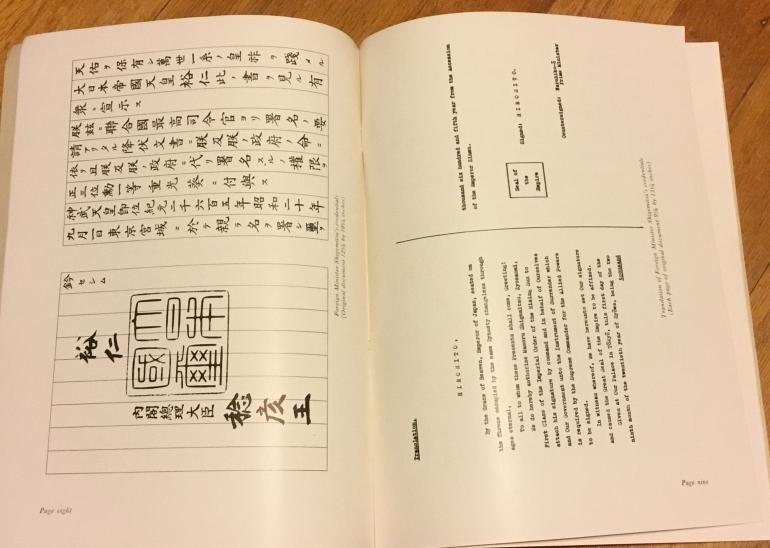 天佑ヲ保有シ萬世一系ノ皇祚ヲ踐メル
大日本帝國天皇裕仁此ノ書ヲ見ル有
衆ニ宣示ス
朕茲ニ聯合國最高司令官ヨリ署名ノ要
請アリタル降伏文書ニ朕及朕ノ政府ノ命ニ
依リ且朕及朕ノ政府ニ代リ署名スルノ權限ヲ
正三位勳一等重光葵ニ付與ス
神武天皇卽位紀元二千六百五年昭和二十年
九月一日東京宮城ニ於テ親ラ名ヲ署シ璽ヲ
鈐セシム
裕仁
大日本國璽
內閣總理大臣
稔彦王
Foreign Minister Shigemitsu's credentials
Page eight
Translation.
HIROHITO,
By the Grace of Heaven, Emperor of Japan, seated on
the Throne occupied by the same Dynasty changeless through
ages eternal,
To all to whom these Presents shall come, Greeting!
We do hereby authorise Mamoru Shigemitsu, Zyosanmi,
First Class of the Imperial Order of the Rising Sun to
attach his signature by command and in behalf of Ourselves
and Our Government unto the Instrument of Surrender which
is required by the Supreme Commander for the Allied Powers
to be signed.
In witness whereof, We have hereunto set Our signature
and caused the Great Seal of the Empire to be affixed.
Given at Our Palace in Tōkyō, this first day of the
ninth month of the twentieth year of Syōwa, being the two
thousand
thousand six hundred and fifth year from the accession
of the Emperor Zinmu.
Seal of
the
Empire
Signed: HIROHITO.
Countersigned: Naruhiko-ō
Prime Minister
Translation of Foreign Minister Shigemitsu's credentials
Page nine